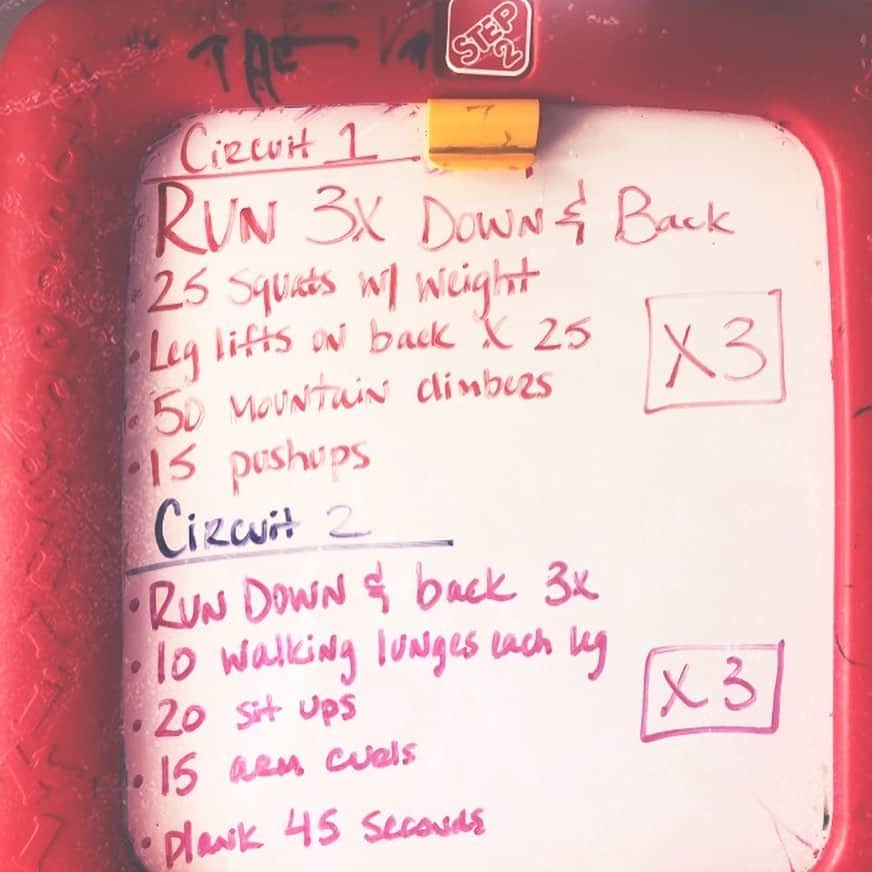 STEP 2
Circuit 1
RUN 3x DOWN & Back
• 25 Squats w/ weight
• Leg lifts on back x 25
• 50 MOUNTAIN climbers
• 15 pushups
Circuit 2
• RUN DOWN & back 3x
• 10 walking lunges each leg
• 20 sit ups
• 15 arm curls
• plank 45 seconds
X3
X3